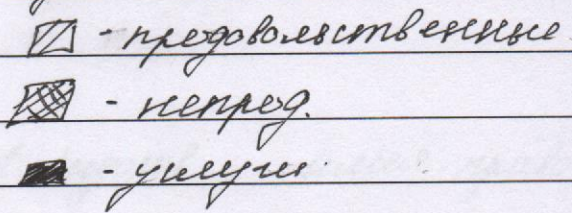 - продовольственные
- непрод.
- услуги